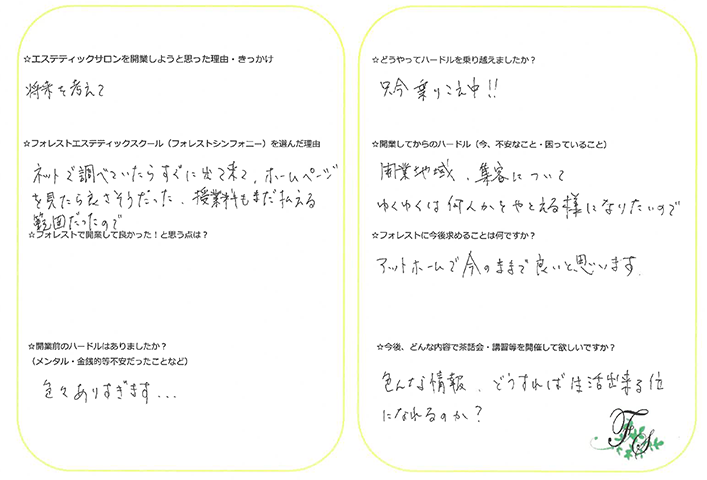 ☆エステティックサロンを開業しようと思った理由・きっかけ
将来を考えて
☆フォレストエステティックスクール（フォレストシンフォニー）を選んだ理由
ネットで調べていたらすぐに出て来て、ホームページ
を見たら良さそうだった、授業料もまだ払える
範囲だったので
☆フォレストで開業して良かった！と思う点は？
☆開業前のハードルはありましたか？
（メンタル・金銭的等不安だったことなど）
色々ありすぎます...
☆どうやってハードルを乗り越えましたか？
只今乗りこえ中!!
☆開業してからのハードル（今、不安なこと・困っていること）
開業地域、集客について
ゆくゆくは何人かをやとえる様になりたいので
☆フォレストに今後求めることは何ですか？
アットホームで今のままで良いと思います.
☆今後、どんな内容で茶話会・講習等を開催して欲しいですか？
色んな情報、どうすれば生活出来る位
になれるのか？
FS